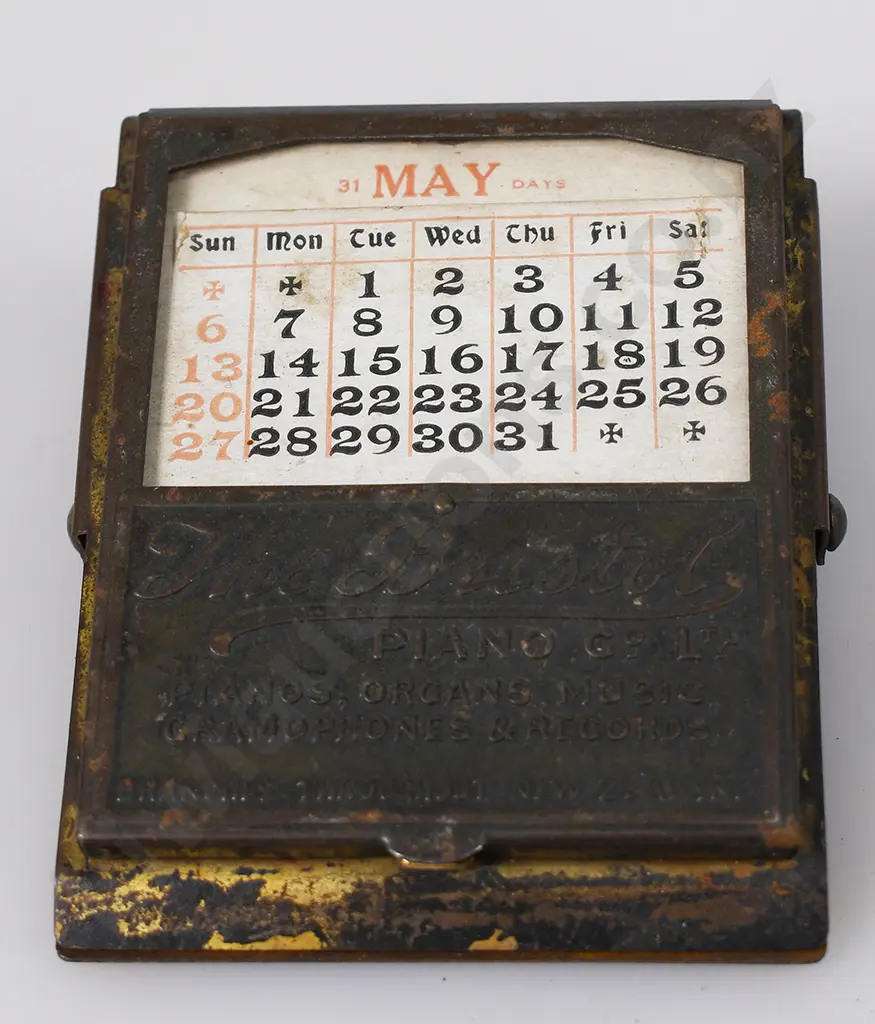 31 MAY DAYS
Sun Mon Tue Wed Thu Fri Sat
1 2 3 4 5
6 7 8 9 10 11 12
13 14 15 16 17 18 19
20 21 22 23 24 25 26
27 28 29 30 31
The Bristol
PIANO Co LTD
PIANOS, ORGANS, MUSIC,
GRAMOPHONES & RECORDS.
BRANCHES THROUGHOUT NEW ZEALAND.